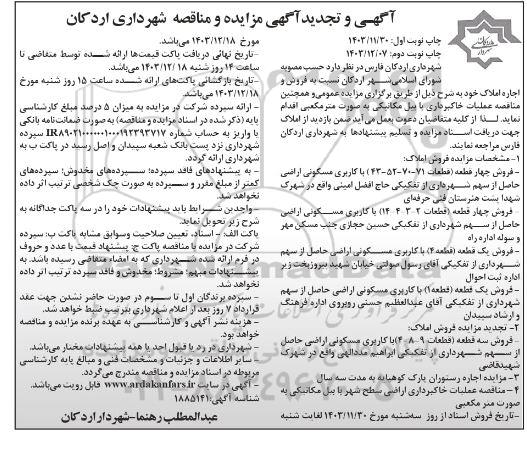 آگهی و تجدیدآگهی مزایده و مناقصه شهرداری اردکان
چاپ نوبت اول: ۱۴۰۳/۱۱/۳۰
چاپ نوبت دوم: ۱۴۰۳/۱۲/۰۷
شهرداری اردکان فارس در نظر دارد حسب مصوبه
شورای اسلامی شهر اردکان نسبت به فروش و
اجاره املاک خود به شرح ذیل از طریق برگزاری مزایده عمومی و همچنین
مناقصه عملیات خاکبرداری با بیل مکانیکی به صورت مترمکعبی اقدام
نماید. لذا از کلیه متقاضیان دعوت بعمل می آید ضمن بازدید از املاک
جهت دریافت اسناد مزایده و تسلیم پیشنهادها به شهرداری اردکان
فارس مراجعه نمایند.
۱- مشخصات مزایده فروش املاک:
- فروش چهار قطعه (قطعات ۷۱-۷۰-۵۲-۴۳) با کاربری مسکونی اراضی
حاصل از سهم شهرداری از تفکیکی حاج افضل امینی واقع در شهرک
شهدا پشت هنرستان فنی حرفه‌ای
- فروش چهار قطعه (قطعات ۲ ۳ ۴ ۱۴) با کاربری مسکونی اراضی
حاصل از سهم شهرداری از تفکیکی حسین حجازی جنب مسکن مهر
و سوله اداره راه
- فروش یک قطعه (قطعه ۴) با کاربری مسکونی اراضی حاصل از سهم
شهرداری از تفکیکی آقای رسول صولتی خیابان شهید بیروزبخت زیر
اداره ثبت احوال
- فروش یک قطعه (قطعه ۱) با کاربری مسکونی اراضی حاصل از سهم
شهرداری از تفکیکی آقای عبدالعظیم حسنی روبروی اداره فرهنگ
و ارشاد سپیدان
۲- تجدید مزایده فروش املاک:
- فروش سه قطعه (قطعات ۹ ۸ ۴) با کاربری مسکونی اراضی حاصل
از سهم شهرداری از تفکیکی ابراهیم مددالهی واقع در شهرک
شهیدقاضی
۳- مزایده اجاره رستوران پارک کوهپایه به مدت سه سال
۴- مناقصه عملیات خاکبرداری اراضی سطح شهر با بیل مکانیکی به
صورت متر مکعبی
-تاریخ فروش اسناد از روز سه‌شنبه مورخ ۱۴۰۳/۱۱/۳۰ لغایت شنبه
مورخ ۱۴۰۳/۱۲/۱۸ می‌باشد.
-تاریخ نهائی دریافت پاکت قیمت‌ها ارائه شده توسط متقاضی تا
ساعت ۱۴ روز شنبه ۱۴۰۳/۱۲/۱۸ می‌باشد.
-تاریخ بازگشائی پاکت‌های ارائه شده ساعت ۱۵ روز شنبه مورخ
۱۴۰۳/۱۲/۱۸ می‌باشد.
- ارائه سپرده شرکت در مزایده به میزان ۵ درصد مبلغ کارشناسی
پایه (ذکر شده در اسناد مزایده و مناقصه) به صورت ضمانت‌نامه بانکی
یا واریز به حساب شماره IR۸۹۰۲۱۰۰۰۰۰۱۰۰۱۹۲۳۹۳۷۱۷ سپرده
شهرداری نزد پست بانک شعبه سپیدان و اصل رسید در پاکت ب به
شهرداری ارائه گردد.
- به پیشنهادهای فاقد سپرده؛ سپرده‌های مخدوش؛ سپرده‌های
کمتر از مبلغ مقرر و سپرده به صورت چک شخصی ترتیب اثر داده
نخواهد شد.
-واجدین شرایط باید پیشنهادات خود را در سه پاکت جداگانه به
شرح زیر تحویل نماید.
پاکت الف- اسناد، تعیین صلاحیت و سوابق مشابه پاکت ب: سپرده
شرکت در مزایده یا مناقصه پاکت ج: پیشنهاد قیمت با عدد و حروف
در فرم ارائه شده شهرداری که به امضاء متقاضی رسیده باشد. به
پیشنهادات مبهم؛ مشروط؛ مخدوش و فاقد سپرده ترتیب اثر داده
نخواهد شد.
- سپرده برندگان اول تا سوم در صورت حاضر نشدن جهت عقد
قرارداد ۷ روز بعد از اعلام شهرداری بترتیب ضبط خواهد شد.
- هزینه نشر آگهی و کارشناسی به عهده برنده مزایده و مناقصه
خواهد بود.
- شهرداری در رد یا قبول احد یا همه پیشنهادات مختار می‌باشد.
- سایر اطلاعات و جزئیات و مشخصات فنی و مبالغ پایه کارشناسی
مربوطه در اسناد مزایده و مناقصه مندرج می‌گردد.
- آگهی در سایت www.ardakanfars.ir قابل رویت می‌باشد.
شناسه آگهی: ۱۸۸۵۱۴۱
عبدالمطلب رهنما-شهردار اردکان